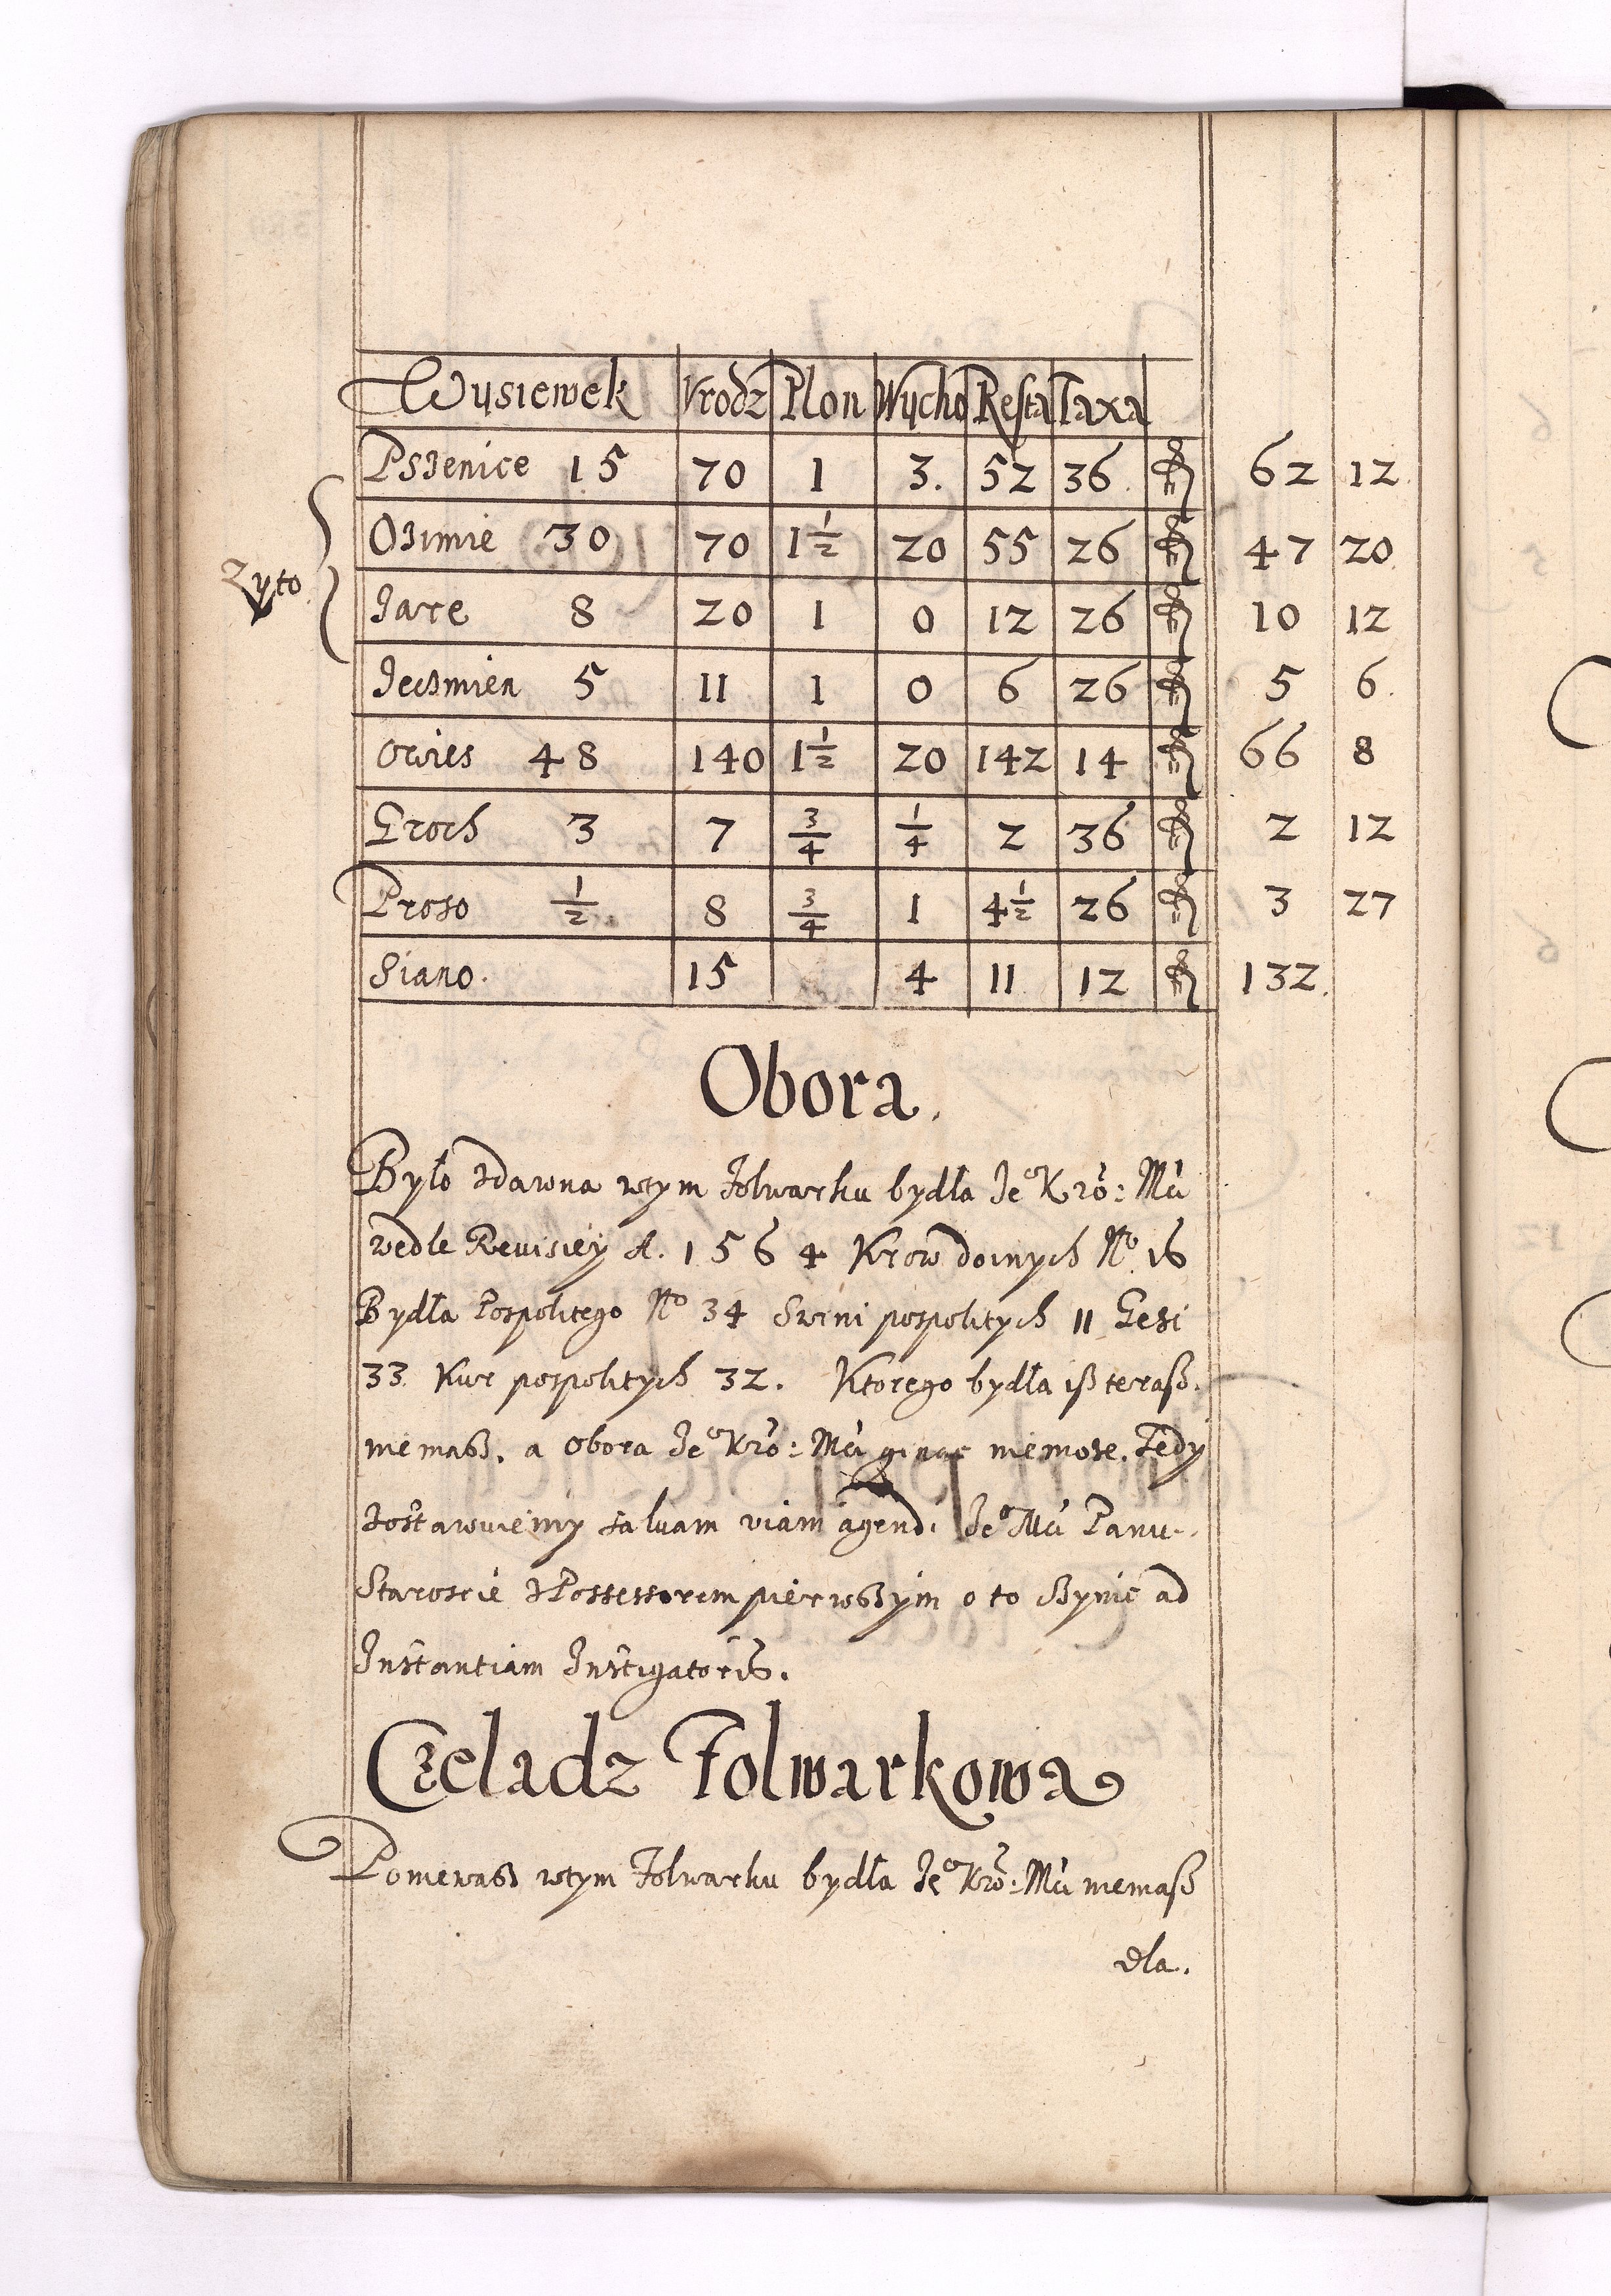 Wysiewek Vrodz Plon Wycho Resta Taxa
Pszenice 15 70 1 3. 52 36 fl 62 12
Zyto
Ozimie 30 70 1½ 20 55 26 fl 47 20
Jare 8 20 1 0 12 26 fl 10 12
Jeczmien 5 11 1 0 6 26 fl 5 6
Owies 48 140 1½ 20 142 14 fl 66 8
Groch 3 7 ¾ ¼ 2 36 fl 2 12
Proso ½ 8 ¾ 1 4½ 26 fl 3 27
Siano. 15 4 11 12 fl 132.
Obora.
Było zdawna wtym Folwarku bydła Je° Kro: Mći
wedle Revisiey A. 1564 Krow doinych N° 16
Bydła Pospolitego N° 34 Swini pospolitych 11 Gesi
33 Kur pospolitych 32. Ktorego bydła isz terasz.
niemasz. a Obora Je° Kro: Mći ginąc niemoze. Tedy
zostawuiemy saluam viam agendi Je° Mći Panu
Staroscie z Possessorem pierwszym o to czynic ad
Instantiam Instigatoris.
Czeladz Folwarkowa
Poniewasz wtym Folwarku bydła Je° Kro: Mći niemasz
dla.